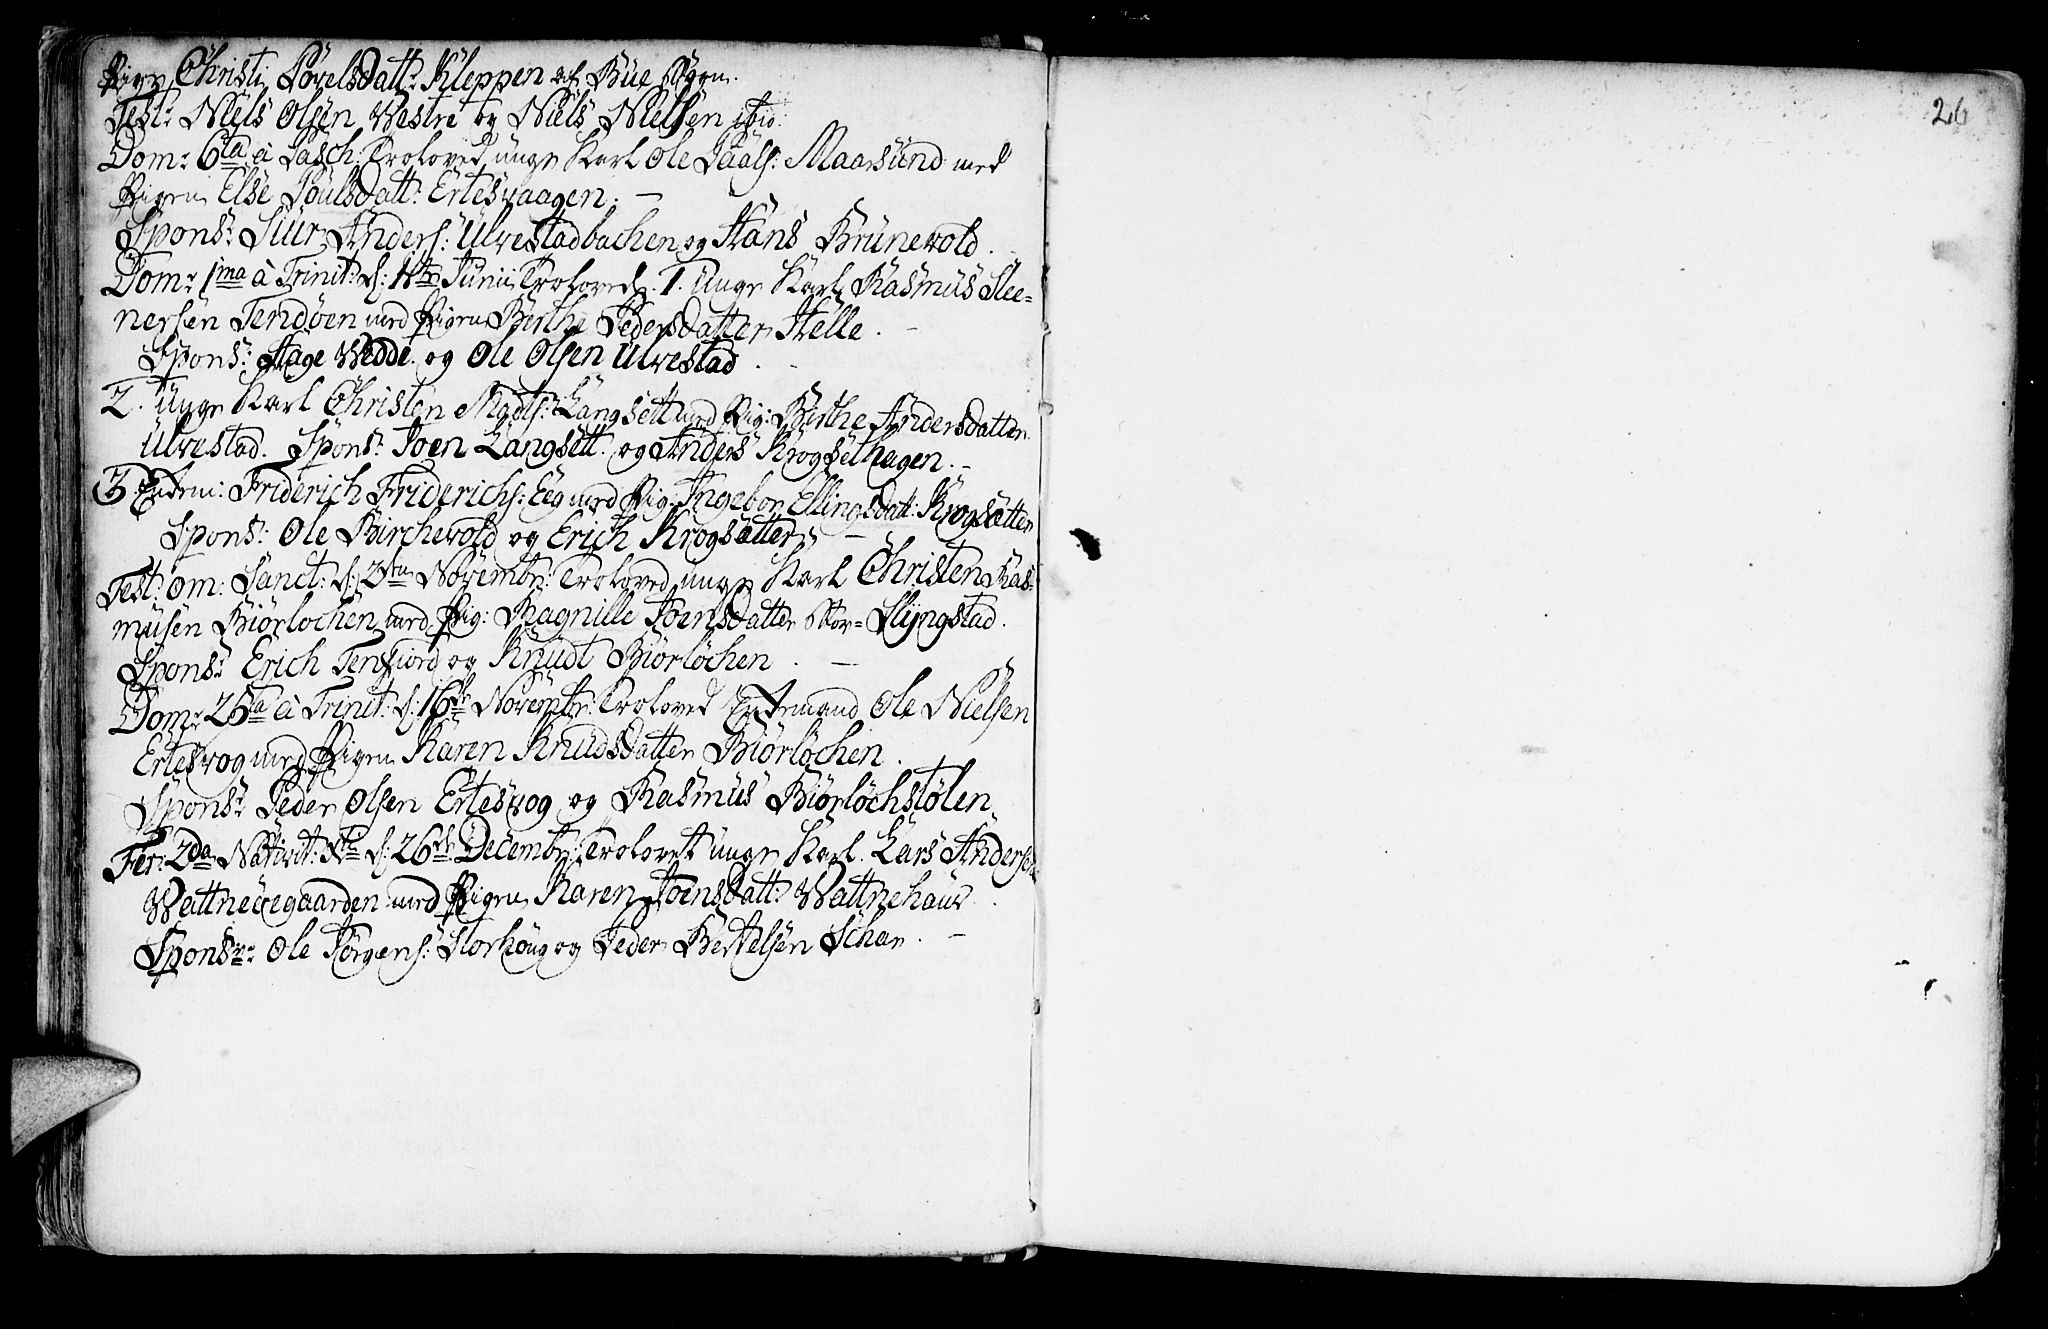 Pigen Christi Povelsdatt: Kleppen af Bue Sogn.
Test: Niels Olsen Westre og Niels Nielsen ibid:
Dom: 6ta à Pasch: Troloved unge Karl Ole Paals: Maarsund med
Pigen Else Poulsdatt: Ertesvaagen. —
Spons: Siur Anders: Ulvestadbachen og Hans Brunevold.
Dom: 1ma à Trinit: d: Junii Troloved. 1. Unge Karl Rasmus Stee=
nersen Tendøen med Pigen Berthe Pedersdatter Helle. —
Spons: Hage Wedde og Ole Olsen Ulvestad. -
2. Unge Karl Christen Madts: Langsett med Pig: Birthe Andersdatter
Ulvestad. Spons: Joen Langsett. og Anders Krogsethagen. -
3 Enkem: Friderich Friderichs: Eeg med Pig: Ingebor Ellingsdatt: Krogsætter
Spons: Ole Birchevold og Erich Krogsætter. —
Fest: om: Sanct: d: 2den Novembr: Troloved unge Karl Christen Ras=
musen Biørlochen med Pig: Ragnille Joensdatter Stor= Slyngstad.
Spons: Erich Tenfiord og Knudt Biørlochen. —
Dom: 26ta à Trinit: d: 16de Novembr: Troloved Enkemand Ole Nielsen
Ertesvog med Pigen Karen Knudsdatter Biørlochen.
Spons: Peder Olsen Ertesvog og Rasmus Biørlochstølen
Fer: 2da Nativit: d: 26de Decembr: Trolovet unge Karl Lars Andersen
Wattneøegaarden med Pigen Karen Joensdatt: Wattnehaus.
Spons: Ole Jørgens: Storhoug og Peder Bertelsen Schar. —
26